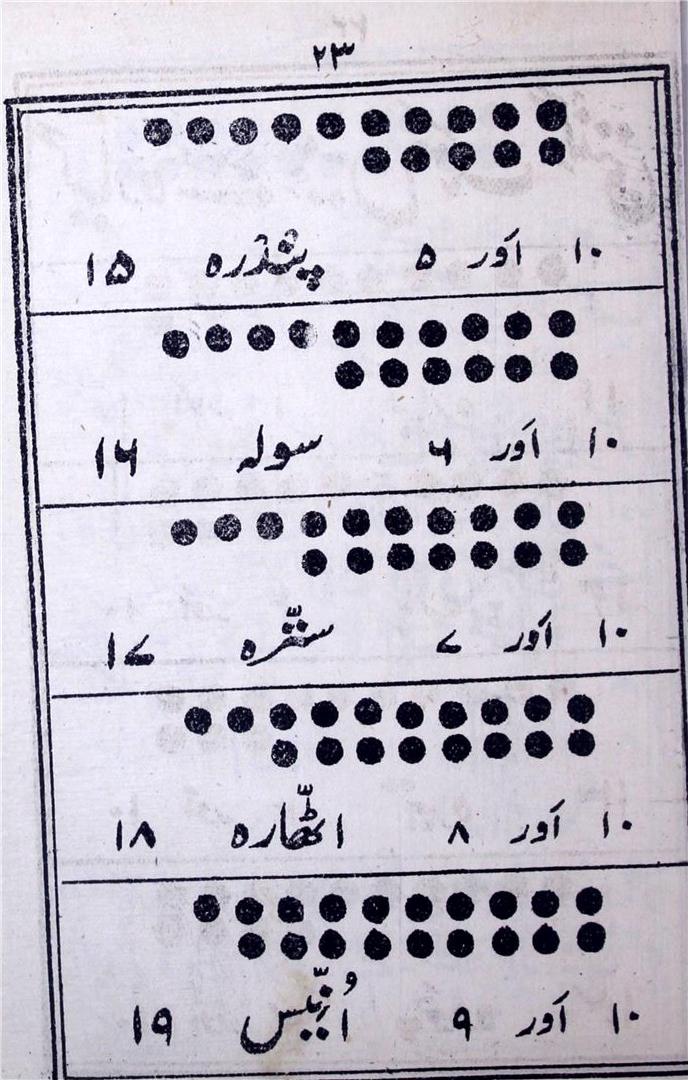 ۲۳
۱۰ اَور ۵ پنْدرہ ۱۵
۱۰ اَور ۶ سولہ ۱۶
۱۰ اَور ۷ ستّرہ ۱۷
۱۰ اَور ۸ اٹّھارہ ۱۸
۱۰ اَور ۹ اُنّیس ۱۹